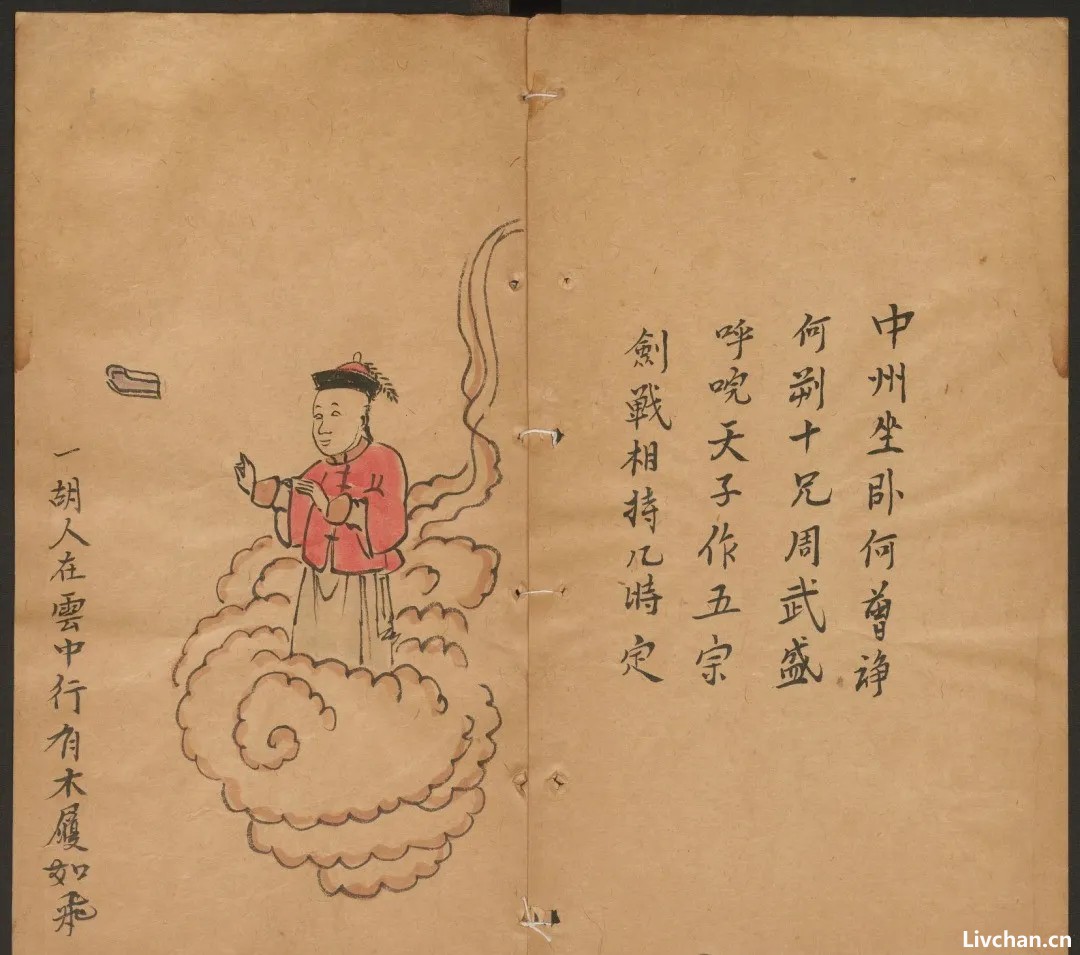 中州坐卧何曾諍
何荆十兄周武盛
呼唍天子作五宗
劍戰相持几時定
一胡人在雲中行有木履如飛
Livchan.cn